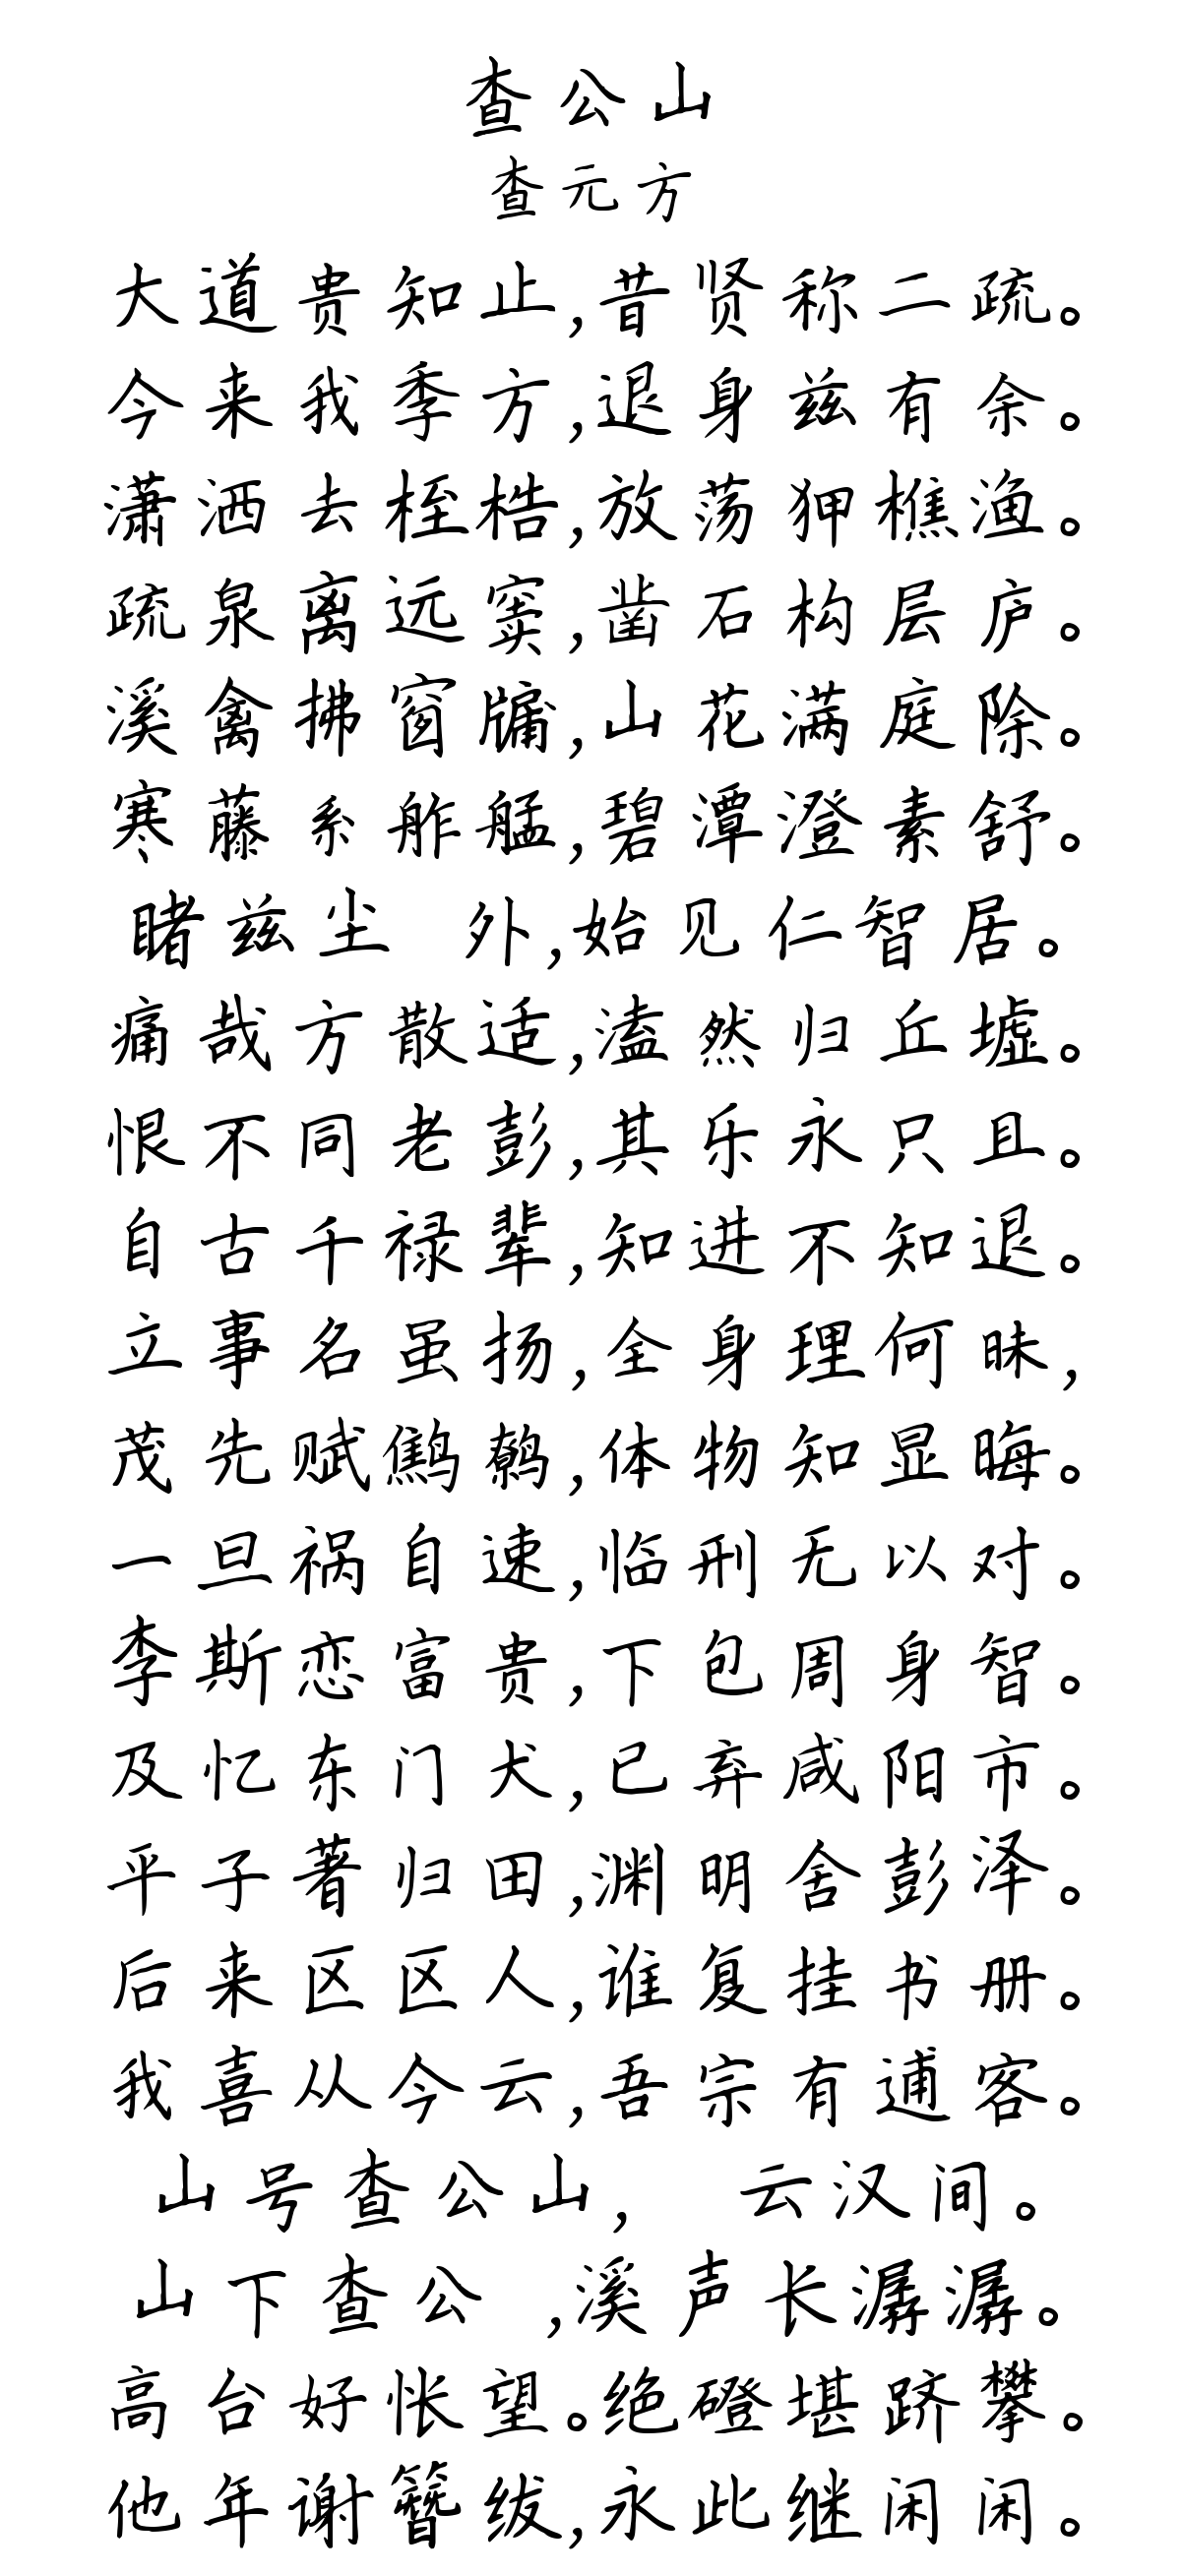 查公山
查元方
大道贵知止,昔贤称二疏。
今来我季方,退身兹有余。
潇洒去桎梏,放荡狎樵渔。
疏泉离远窦,凿石构层庐。
溪禽拂窗牖,山花满庭除。
寒藤系舴艋,碧潭澄素舒。
睹兹尘 外,始见仁智居。
痛哉方散适,溘然归丘墟。
恨不同老彭,其乐永只且。
自古千禄辈,知进不知退。
立事名虽扬,全身理何昧,
茂先赋鹪鹩,体物知显晦。
一旦祸自速,临刑无以对。
李斯恋富贵,下包周身智。
及忆东门犬,已弃咸阳市。
平子著归田,渊明舍彭泽。
后来区区人,谁复挂书册。
我喜从今云,吾宗有逋客。
山号查公山, 云汉间。
山下查公 ,溪声长潺潺。
高台好怅望。绝磴堪跻攀。
他年谢簪绂,永此继闲闲。